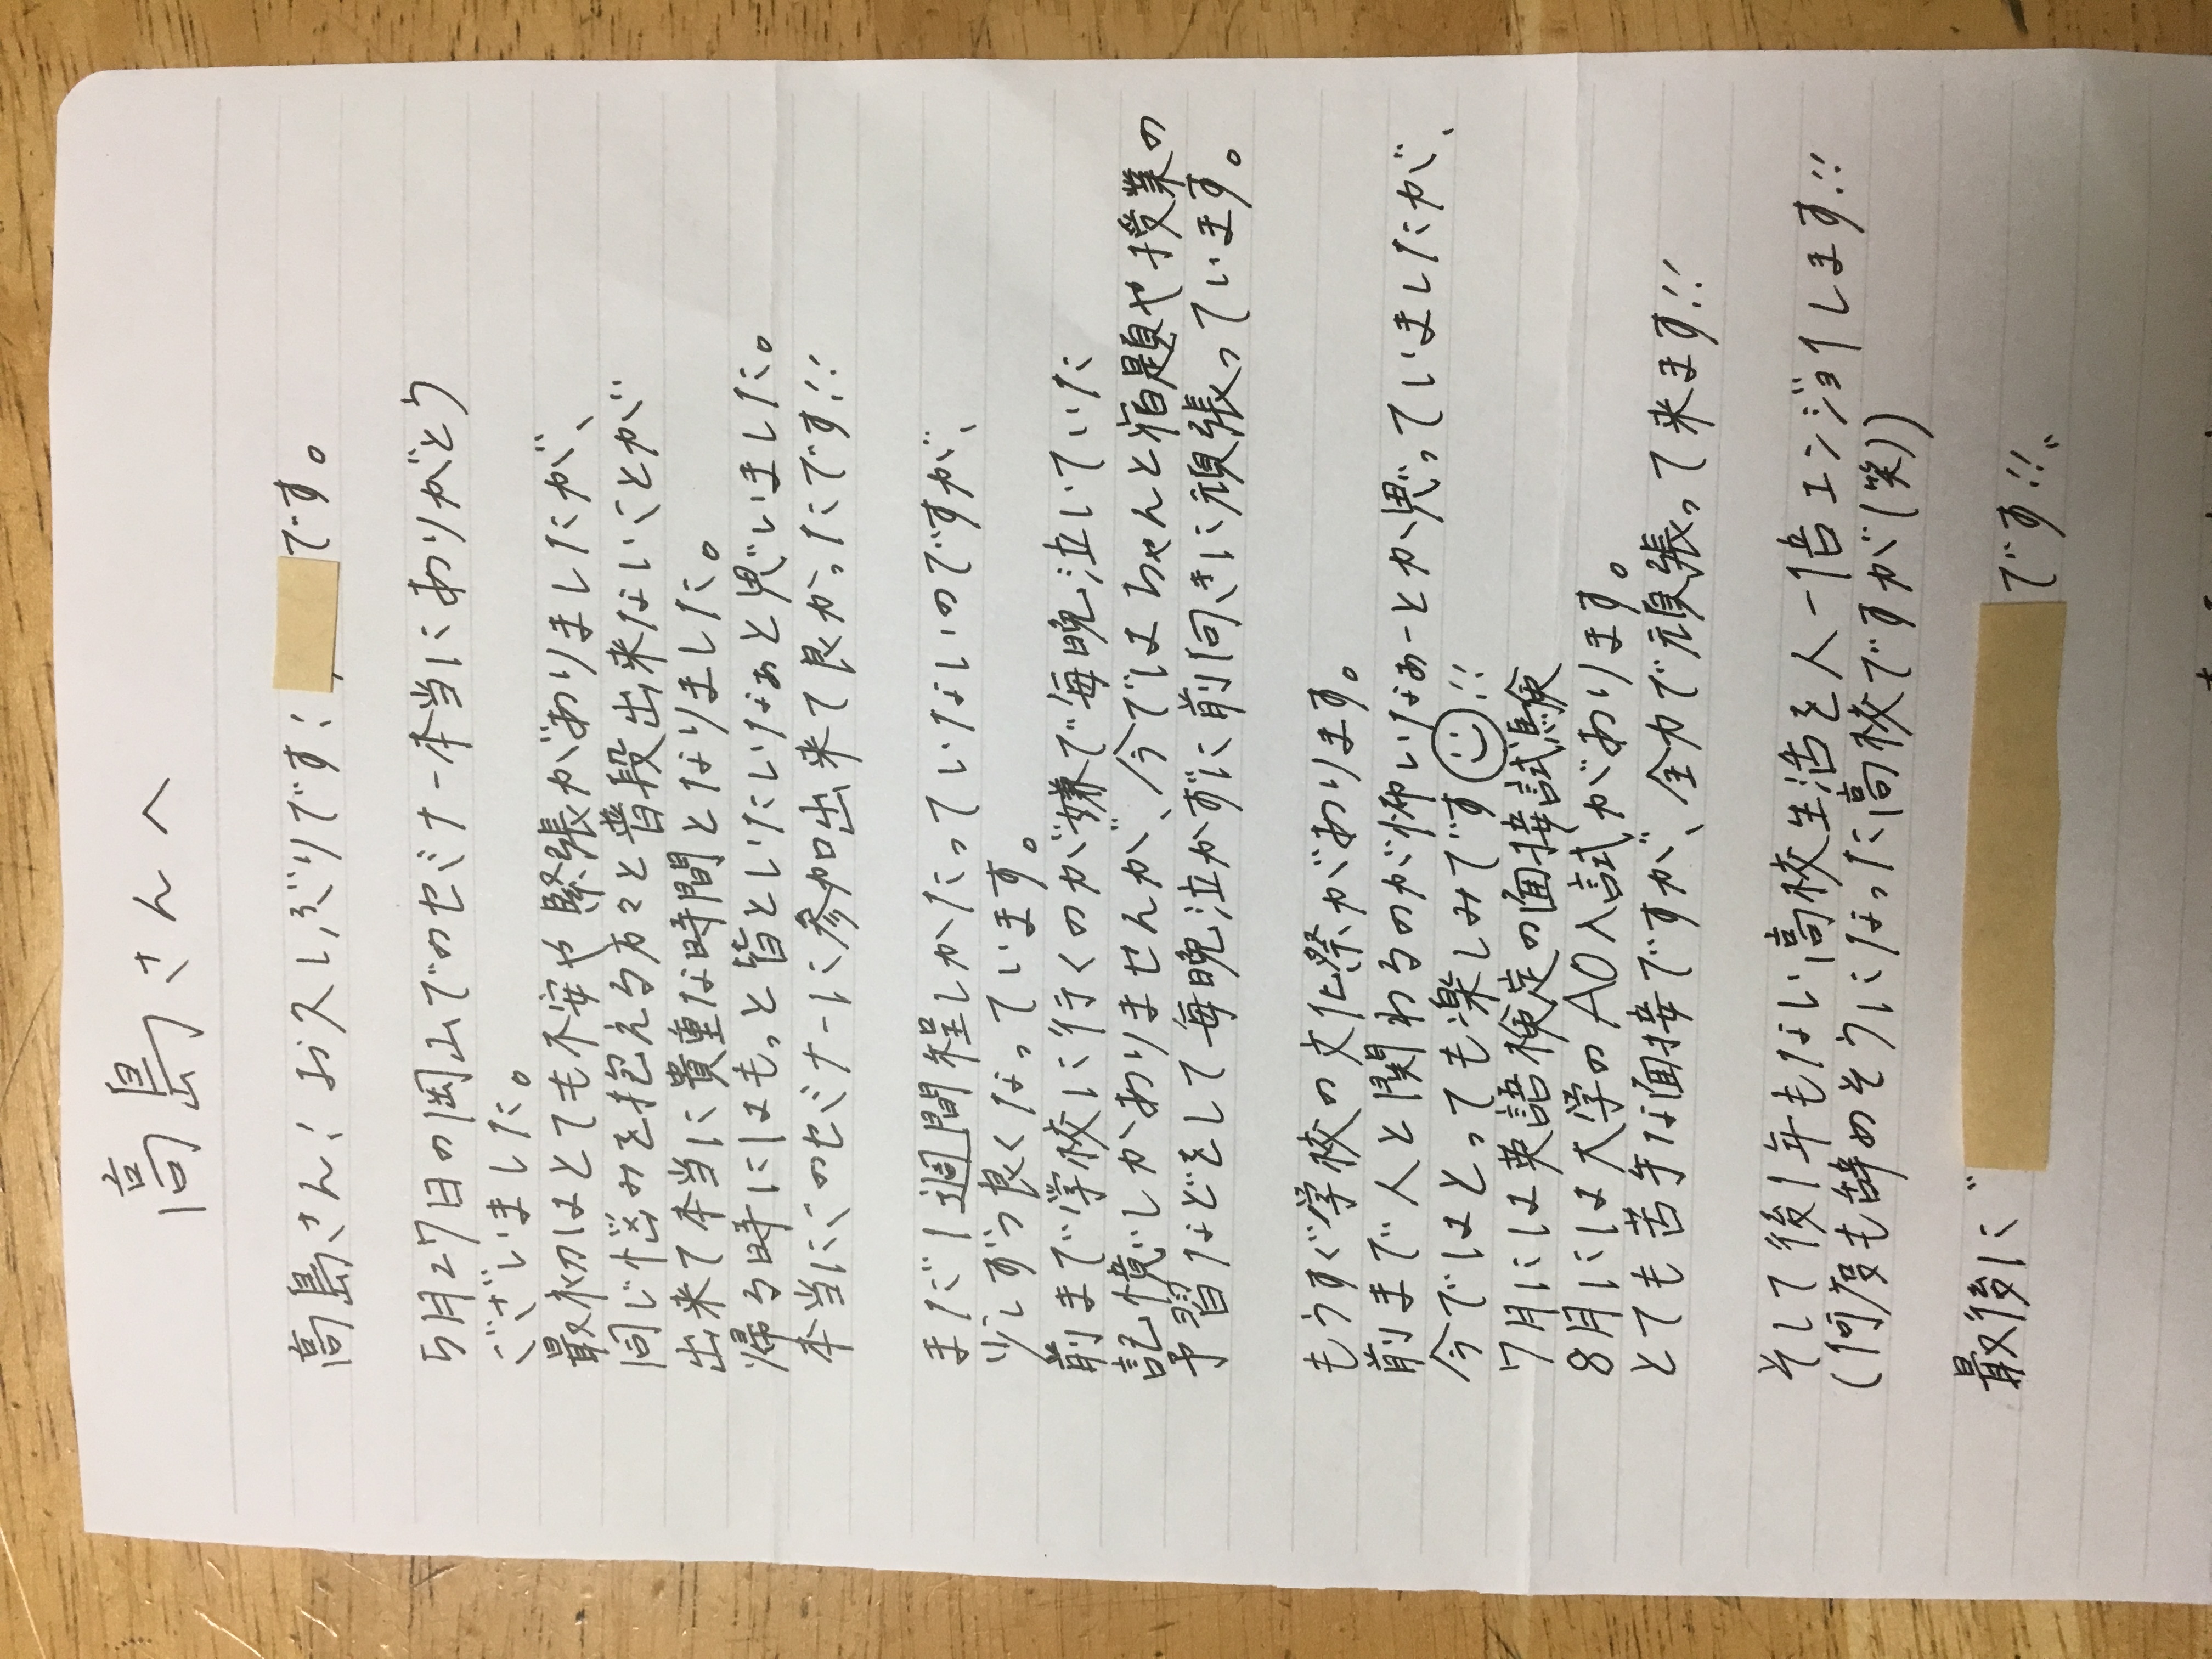 高島さんへ
高島さん！お久しぶりです！
です。
5月27日の岡山でのセミナー本当にありがとう
ございました。
最初はとても不安や緊張がありましたが、
同じ悩みを抱える方々と普段出来ないことが
出来て本当に貴重な時間となりました。
帰る時にはもっと皆といたいなぁと思いました。
本当にこのセミナーに参加出来て良かったです!!
まだ1週間程しかたっていないのですが、
少しずつ良くなっています。
前まで学校に行くのが嫌で毎晩泣いていた
記憶しかありませんが、今ではちゃんと宿題や授業の
予習などをして毎晩泣かずに前向きに頑張っています。
もうすぐ学校の文化祭があります。
前まで人と関わるのが怖いなぁーとか思っていましたが、
今ではとっても楽しみです☺!!
7月には英語検定の面接試験
8月には大学のAO入試があります。
とても苦手な面接ですが、全力で頑張って来ます!!
そして後1年もない高校生活を人一倍エンジョイします!!
(何度も辞めそうになった高校ですが(笑))
最後に〝
です!!〟